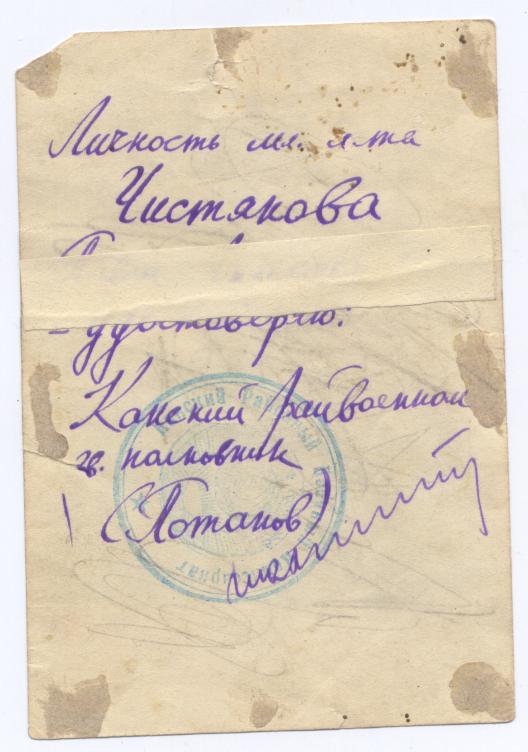 Личность мл. л-та
Чистякова
- удостоверяю:
Канский Райвоенком
гв. полковник
(Потапов)
Районный